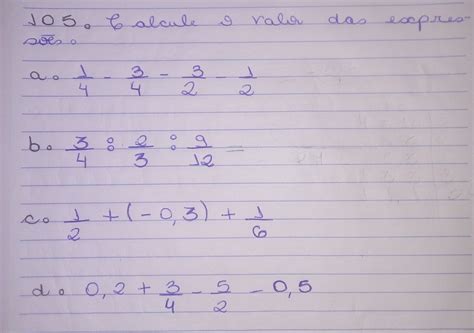 105. Calcule o valor das expres-
sões.
a. 1/4 - 3/4 - 3/2 - 1/2
b. 3/4 : 2/3 : 9/12 =
c. 1/2 + (-0,3) + 1/6
d. 0,2 + 3/4 - 5/2 - 0,5